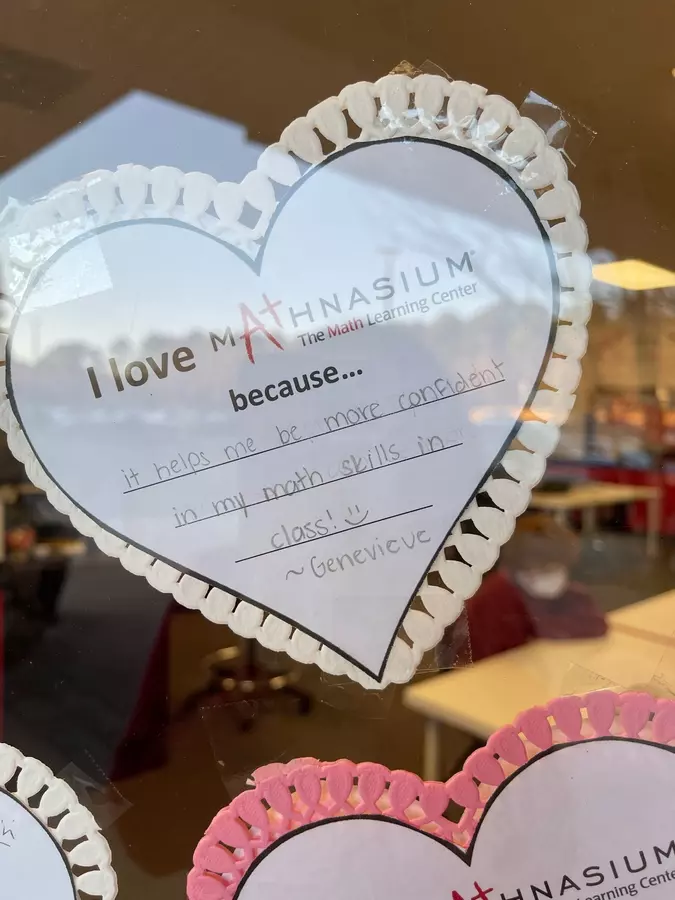 I love MATHNASIUM®
The Math Learning Center
because...
it helps me be more confident
in my math skills in
class! :)
~Genevieve
ATHNASIUM
Learning Cente